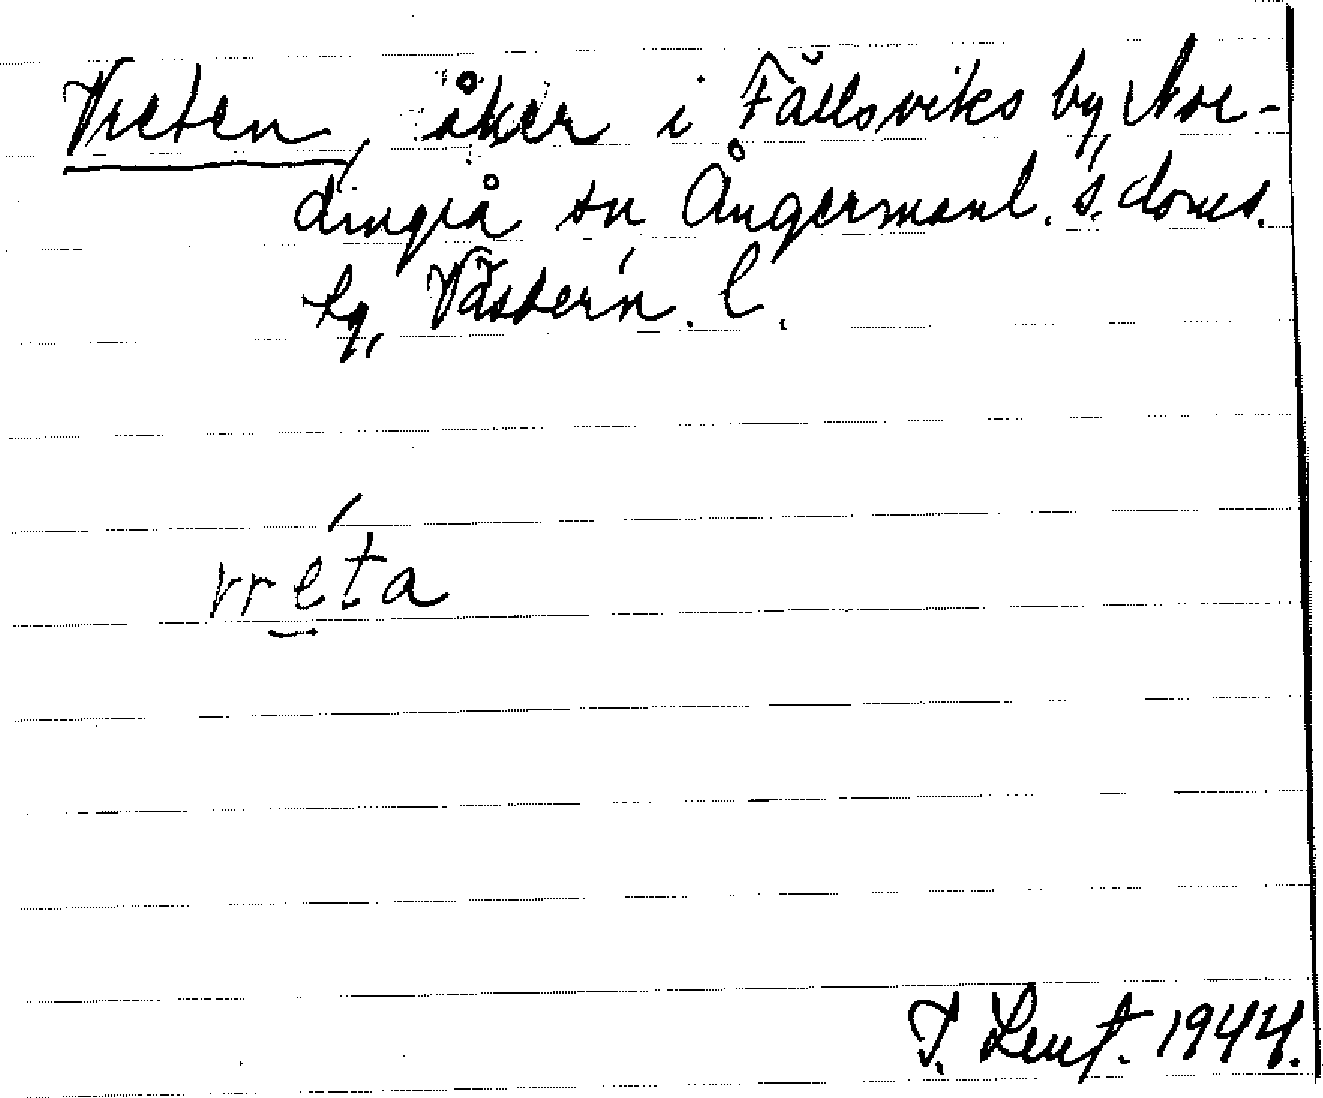 Vreten, åker i Fällsviks by, Nor-
dingrå sn Ångermanl. s. doms.
hg, Västern. l.
vréta
1944.